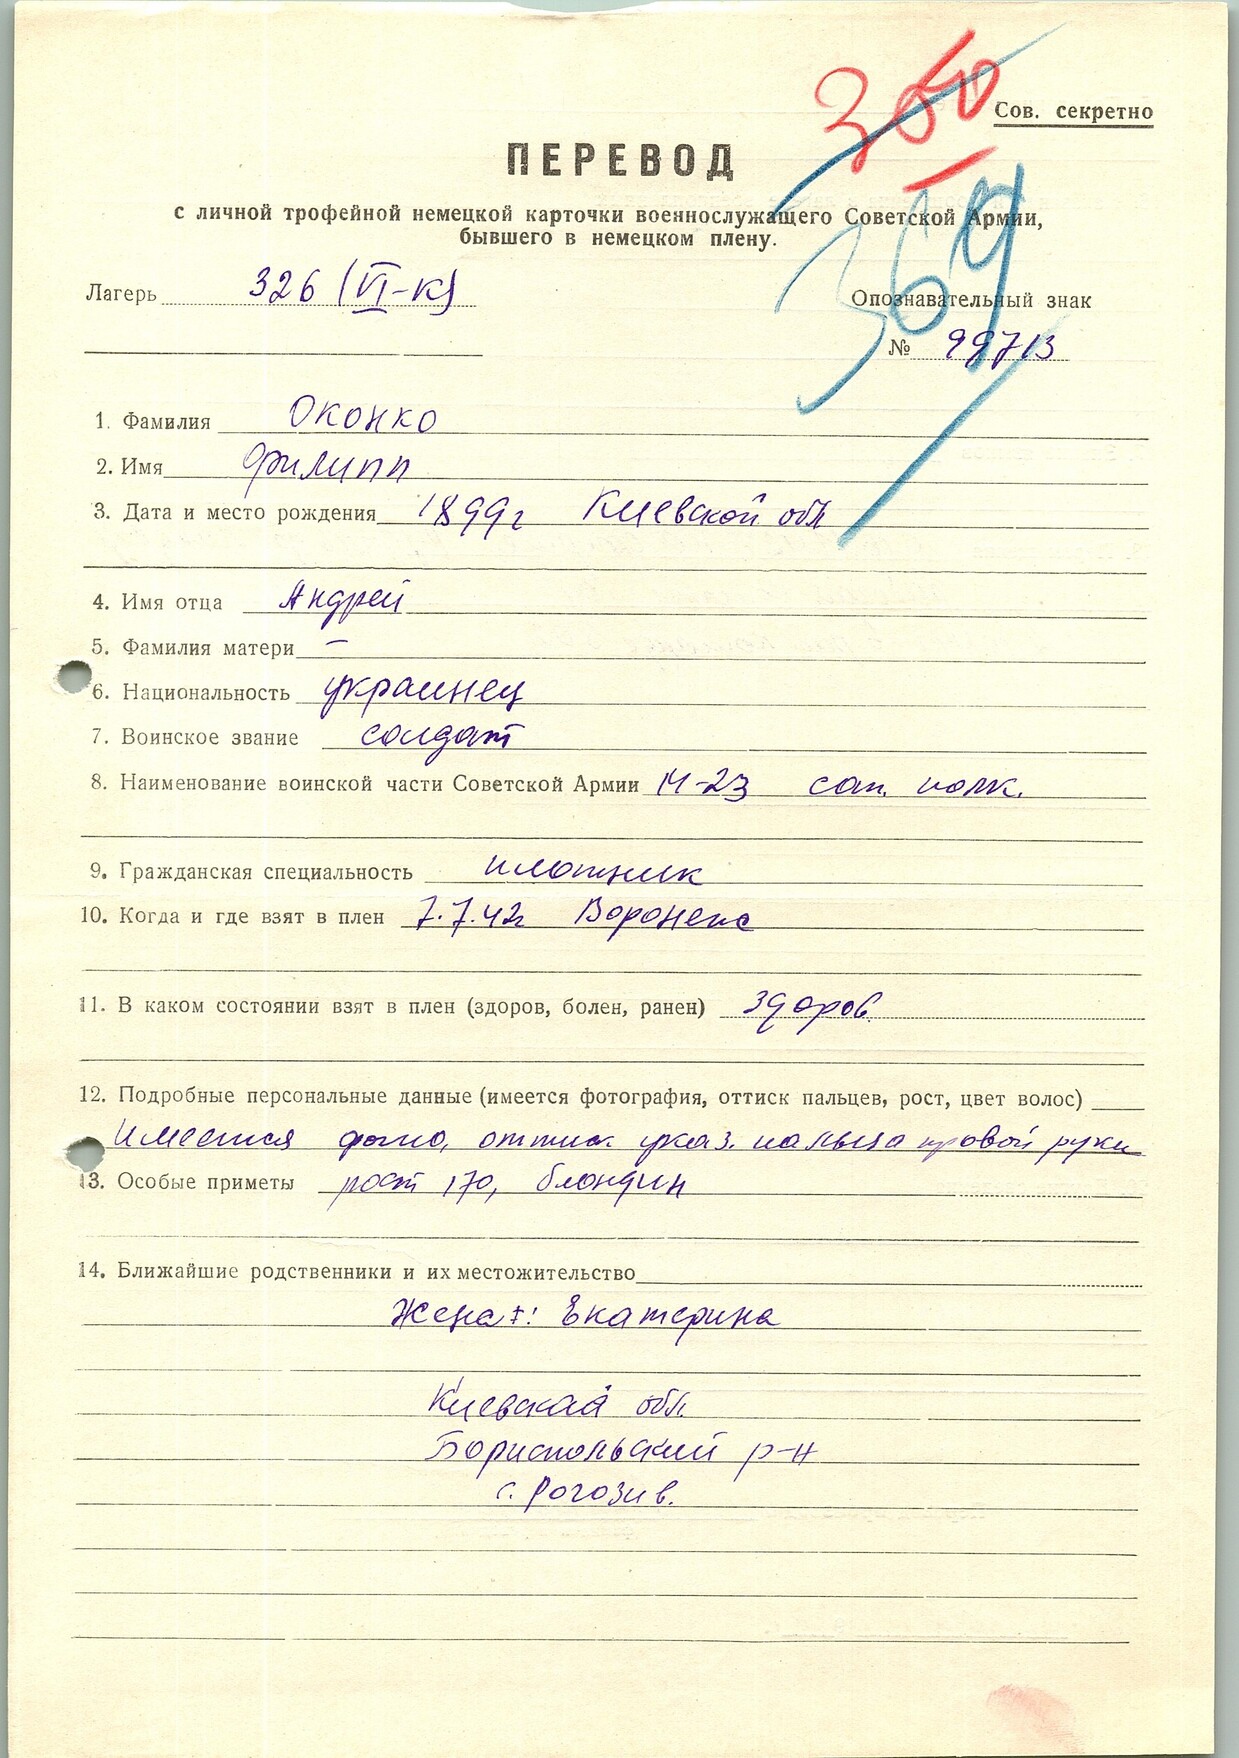 350
Сов. секретно
ПЕРЕВОД
с личной трофейной немецкой карточки военнослужащего Советской Армии,
бывшего в немецком плену.
369
Лагерь 326 (VI-К)
Опознавательный знак
№ 99713
1. Фамилия Оконко
2. Имя Филипп
3. Дата и место рождения 1899г Киевской обл
4. Имя отца Андрей
5. Фамилия матери —
6. Национальность украинец
7. Воинское звание солдат
8. Наименование воинской части Советской Армии М-23 сап. полк.
9. Гражданская специальность плотник
10. Когда и где взят в плен 7.7.42г Воронеж
11. В каком состоянии взят в плен (здоров, болен, ранен) здоров.
12. Подробные персональные данные (имеется фотография, оттиск пальцев, рост, цвет волос)
Имеется фото, оттиск указ. пальца правой руки
13. Особые приметы рост 170, блондин
14. Ближайшие родственники и их местожительство
Жена: Екатерина
Киевская обл.
Бориспольский р-н
с. Рогозив.